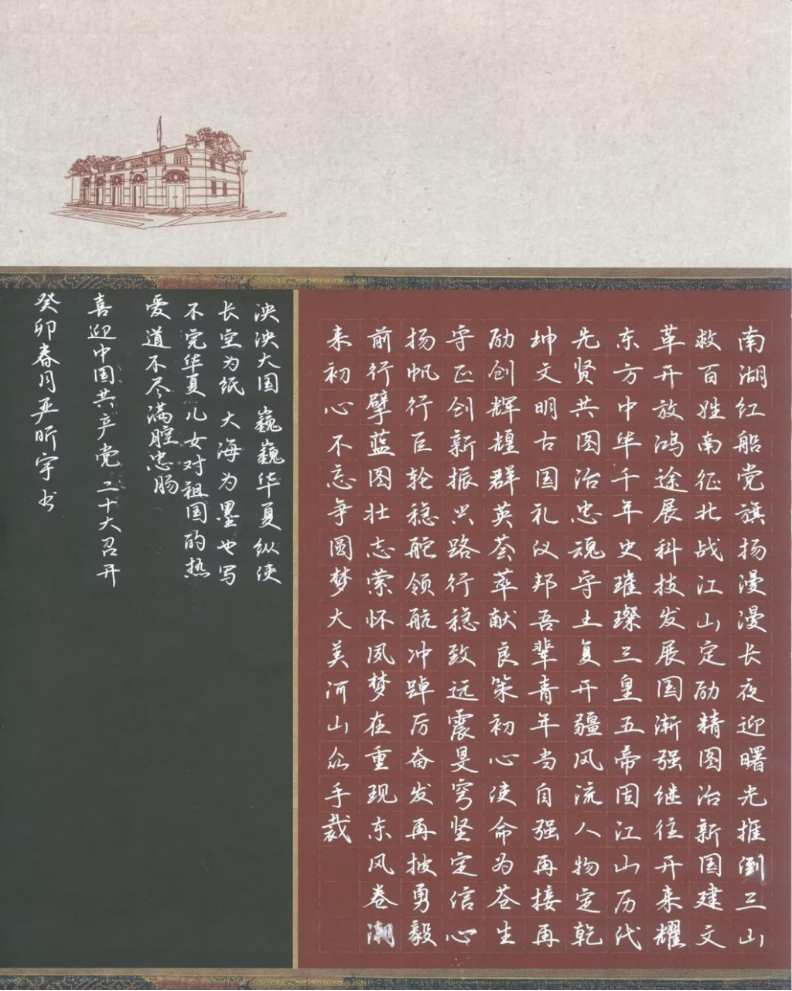 南湖红船党旗扬漫漫长夜迎曙光推倒三山
救百姓南征北战江山定励精图治新国建文
革开放鸿途展科技发展国渐强继往开来耀
东方中华千年史璀璨三皇五帝固江山历代
先贤共图治忠魂守土复开疆风流人物定乾
坤文明古国礼仪邦吾辈青年当自强再接再
励创辉煌群英荟萃献良策初心使命为苍生
守正创新振兴路行稳致远震旻穹坚定信心
扬帆行巨轮稳舵领航冲踔厉奋发再披勇毅
前行擘蓝图壮志萦怀夙梦在重现东风卷潮
来初心不忘争圆梦大美河山众手裁
泱泱大国巍巍华夏纵使
长空为纸大海为墨也写
不完华夏儿女对祖国的热
爱道不尽满腔忠肠
喜迎中国共产党二十大召开
癸卯春月严昕宇书